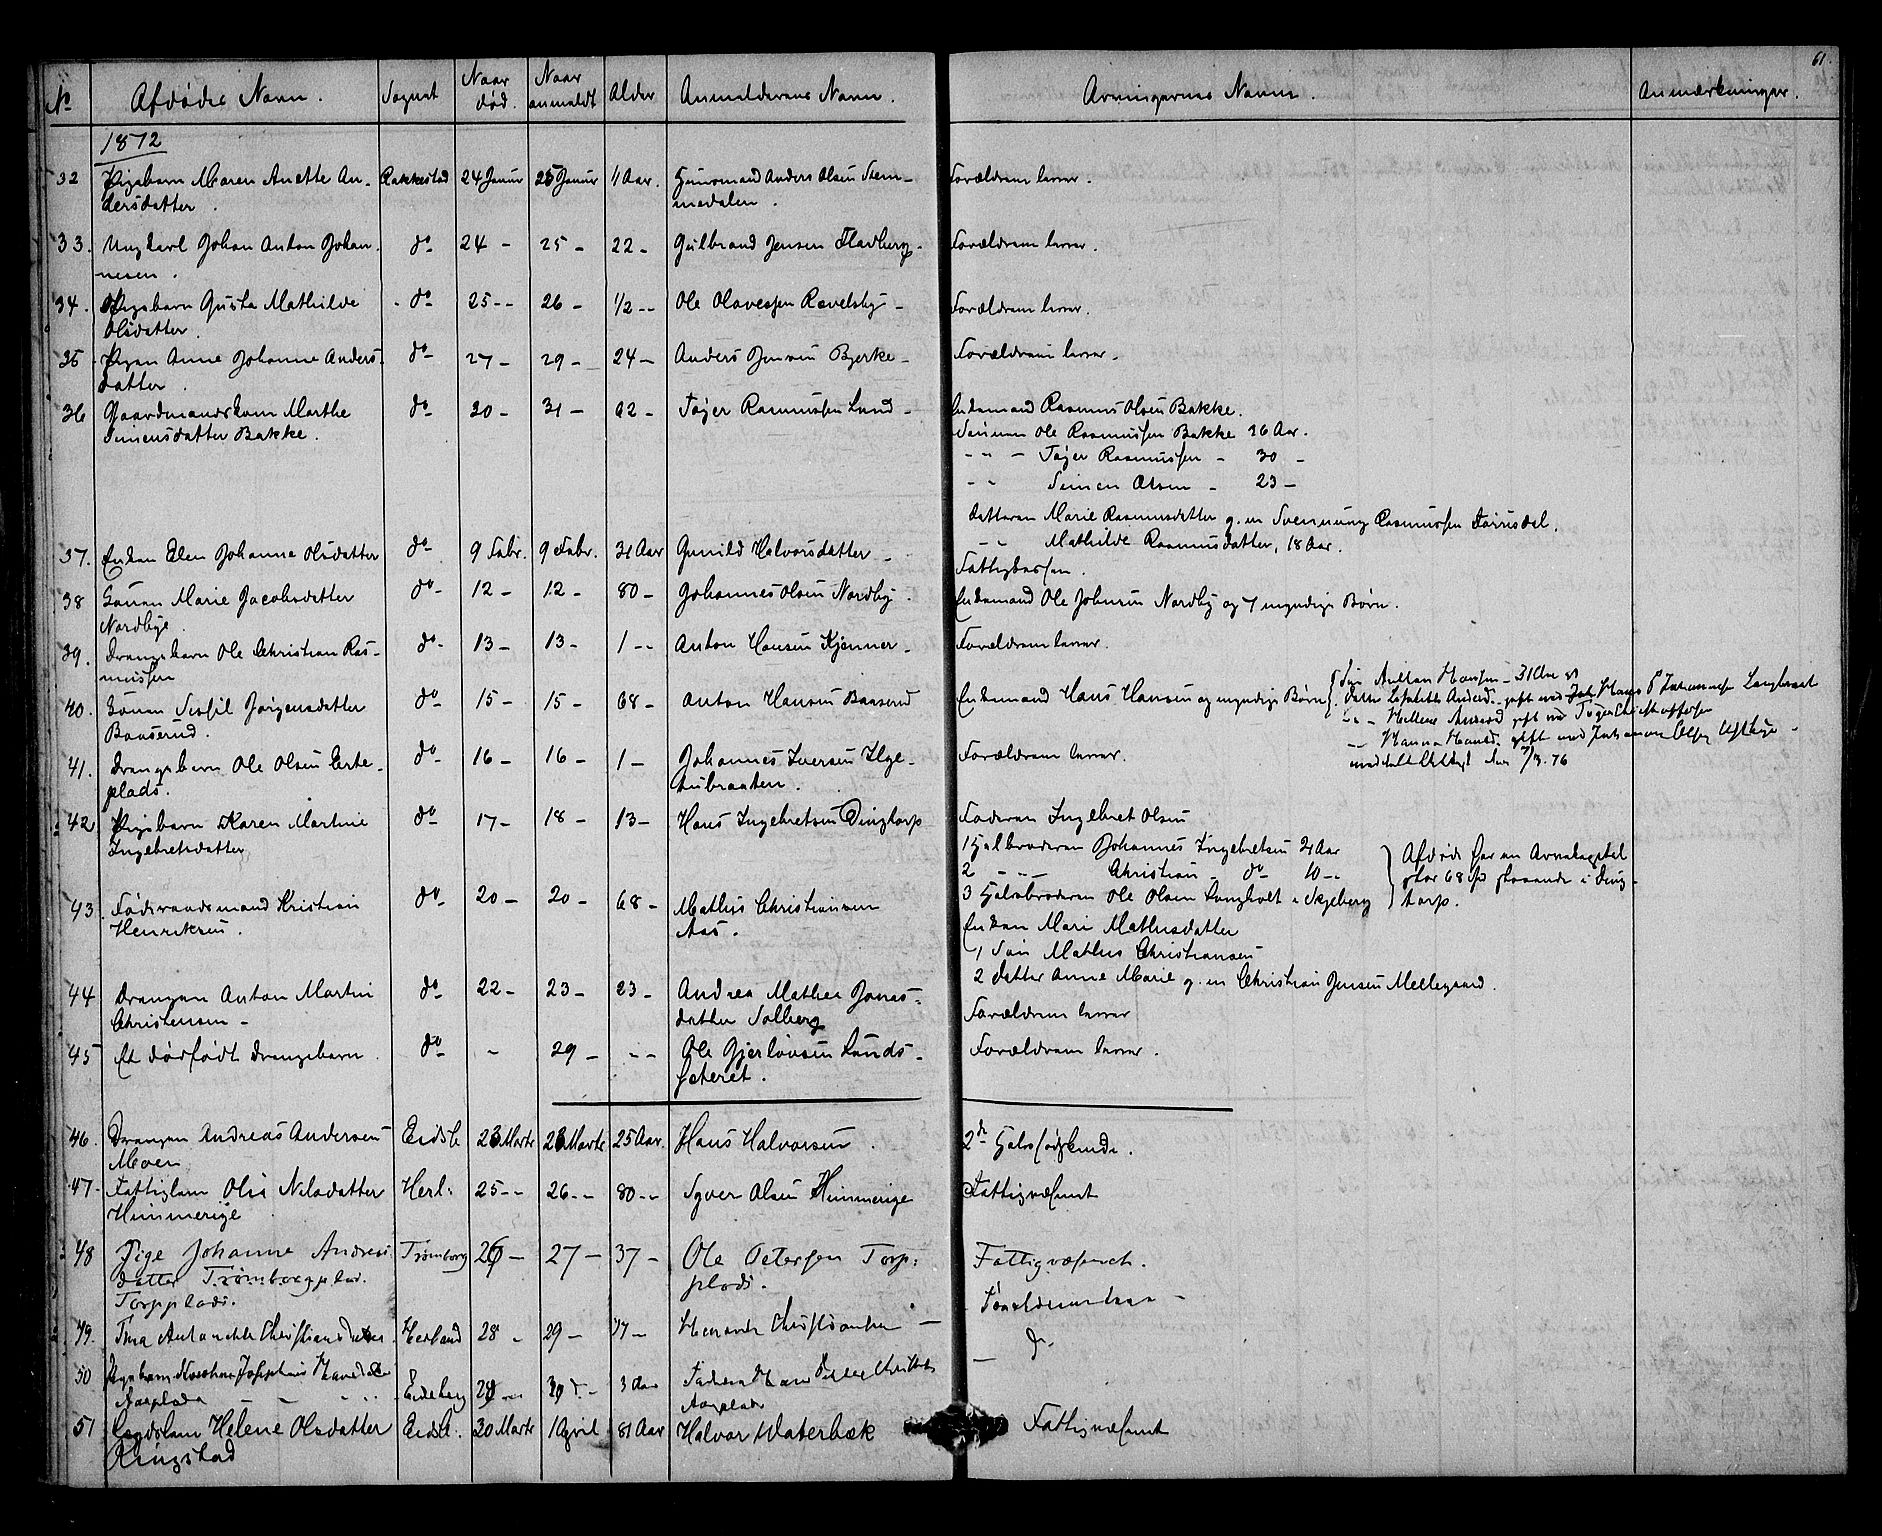 61.
No Afdødes Navn. Sognet Naar død. Naar anmeldt Alder Anmelderens Navn. Arvingernes Navne. Anmærkninger.
1872
32 Pigebarn Maren Anette An- Rakkestad 24 Januar 25 Januar 11 Aar. Huusmand Anders Olsen Forældrene lever.
dersdatter.
33. Ungkarl Johan Anton Johan- do 24 - 25 - 22 - Gulbrand Jensen Fladberg - Forældrene lever.
nesen.
34. Pigebarn Gusta Mathilde - do 25 - - 26 - 1/2 - - Ole Olavessen Ravelsby - Forældrene lever.
Olsdatter
35 Pigen Anne Johanne Anders- do 27 - 29 - 24 - Anders Jensen Bjerke - Forældrene lever.
datter.
36 Gaardmandskone Marthe do 20 - 31 - 62 - Tøger Rasmussen Lund - Enkemand Rasmus Olsen Bakke.
Simensdatter Bakke. Sønnen Ole Rasmussen Bakke 26 Aar.
- - - Tøger Rasmussen - 30 -
- - Simen Olsen - 23 -
datteren Marie Rasmusdatter g. m Svennung Rasmussen
- - Mathilde Rasmusdatter, 18 Aar.
37. Enken Elen Johanne Olsdatter do 9 Febr. 9 Febr. 31 Aar Gunild Halvorsdatter - Fattigkassen.
38 Konen Marie Jacobsdatter do 12 - 12 - 80 - Johannes Olsen Nordby. Enkemand Ole Johnsen Nordby og 7 myndige Børn.
Nordbye.
39. Drengebarn Ole Christian Ras- do 13 - 13 - 1 - - Anton Hansen Kjenner - Forældrene lever.
mussen
40. Konen Sissil Jørgensdatter do 15 - 15 - 68 - Anton Hansen Baaserud Enkemand Hans Hansen og myndige Børn { Søn Anthon Hansen - 31 Aar
Baaserud. - gift med Hans P Johannesse
- - Hellene gift med Tøger Christoffersen
- - Hanna gift med Johannes Olsen
7/3.76
41. Drengebarn Ole Olsen Erte- do 16 - 16 - 1 - Johannes Iversen Forældrene lever.
plads.
42 Pigebarn Karen Martine do 17 - 18 - 13 - Hans Ingebretsen Dingtorp Faderen Ingebret Olsen
Ingebretsdatter 1 Halbroderen Johannes Ingebretsen 21 Aar
2 - - - Christian - do 10 - - } Afdøde har en Arvekapital
stor 68 Spd staaende i Ding-
torp.
3 Halvbroderen Ole Olsen Langholt i Skjeberg
43. Føderaadsmand Kristian do 20 - 20 - 68 - Mathis Christiansen Enken Mari Mathisdatter
Henriksen. Aas. 1 Søn Mathis Christiansen
2 datter Anne Marie g. m Christian Jensen Mellegaard.
44 Drengen Anton Martin do 22 - 23 - 23 - Andrea Mathea Jonas- Forældrene lever
Christensen - datter Solberg
45 Et dødfødt Drengebarn. do - 29 - - - Ole Gjerløvsen Lunds- Forældrene lever.
sæteret.
46. Drengen Andreas Andersen Eidsb 23 Marts 23 Marts 25 Aar. Hans Halvorsen. 2de Halvsødskende.
Moen
47 - Fattiglem Olia Nilsdatter Herl: 25 - - 26 - - 80 - - Syver Olsen Himmerige Fattigvæsenet
Himmerige
48 Pige Johanne Andreas- Trømborg 26 - 27 - 37 - Ole Petersen Torp: Fattigvæsenet.
datter Trømborgplad. plads.
Torpplads.
49. Tina Antonette Christiansdatter Herland 28 - 29 - 17 - Christiansen - Forældrene lever -
50 Pigebarn Josephine Eidsberg 29 - 30 - - 3 Aar Faderen - do
Aasplads Aasplads
51 Lægdslem Helene Olsdatter Eidsb. 30 Marts 1 April 81 Aar Halvor Waterbæk Fattigvæsenet
Ringstad